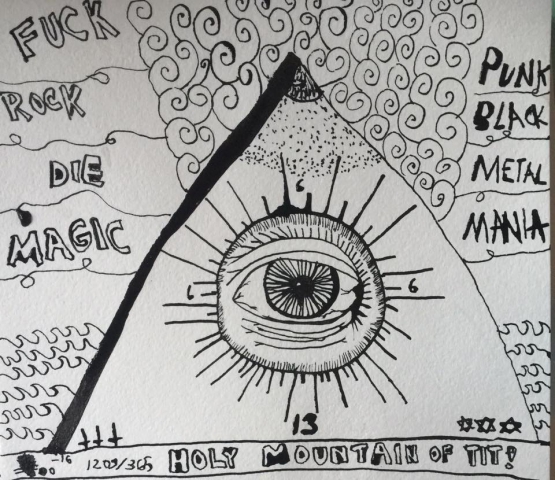 FUCK
ROCK
DIE
MAGIC
PUNK
BLACK
METAL
MANIA
6
6 6
13
-16 1209/365 HOLY MOUNTAIN OF TIT!